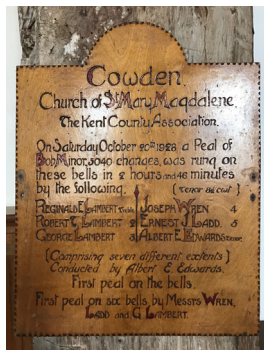 Cowden.
Church of St Mary Magdalene.
The Kent County Association.
On Saturday October 20th 1928 a Peal of
Bob Minor, 5040 changes, was rung on
these bells in 2 hours and 40 minutes
by the following. {Tenor 8¼ cwt}
Reginald E. Lambert Treble Joseph Wren 4
Robert T. Lambert 2 Ernest J. Ladd. 5
George Lambert 3 Albert E. Edwards Tenor
{Comprising seven different extents}
Conducted by Albert E. Edwards.
First peal on the bells.
First peal on six bells by Messrs Wren,
Ladd and G Lambert.